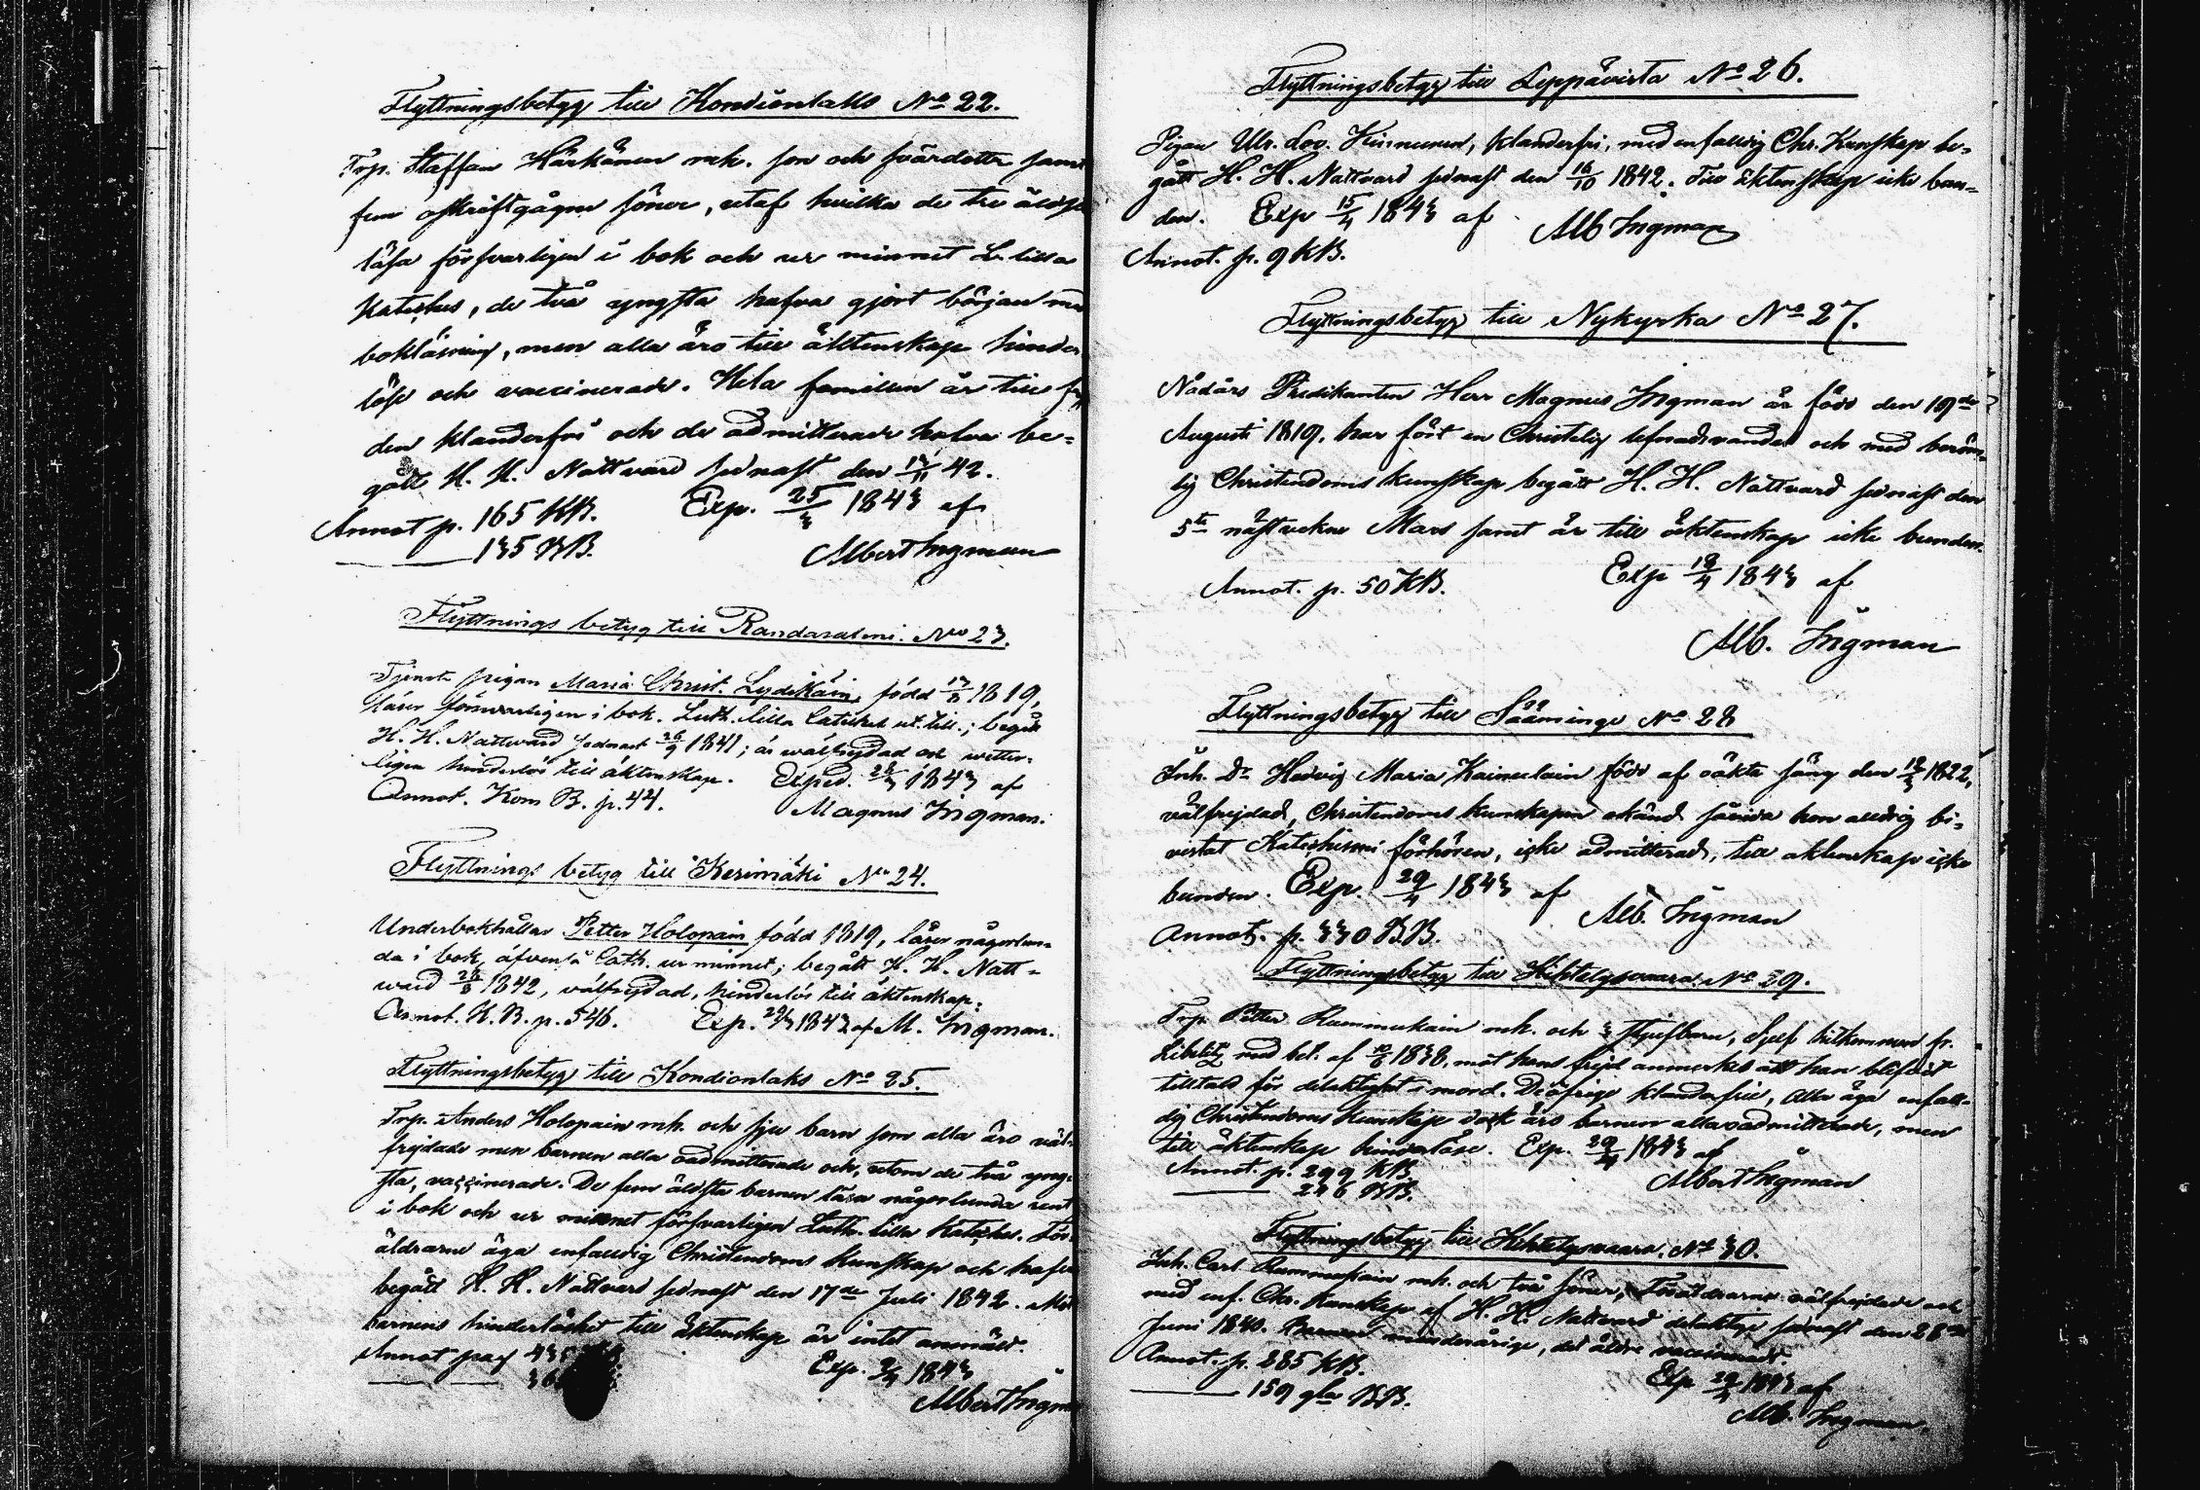 Flyttningsbetyg till Kondionlaks No 22.
Trp. Staffan Härkänen mh. son och svärdotter samt
fem afskriftgågne söner, utaf hvilka de tre äldsta
läsa försvarligen i bok och ur minnet L. lilla
Kateches, de två yngsta hafva gjort början me
bokläsning, men alla äro till äktenskap hinder
löse och vaccinerade. Hela familien är till frej
den klanderfri och de admitterade hafva be-
gått H. H. Nattvard sednast den 17/11 42.
Annot p. 165 KB. Exp. 25/3 1843 af
135 BB. Albert Ingman
Flyttnings betyg till Randasalmi. No 23.
Tjenste pigan Maria Christ. Lydikäin, född 17/8 1819,
läser försvarligen i bok. Luth. lilla Catiches ut. till.; begått
H. H. Nattvard sednast 26/9 1841; är wälfrejdad och wetter-
ligen hinderlös till äktenskap. Exped. 28/3 1843 af
Annot. Kom B. p. 44. Magnus Ingman.
Flyttnings betyg till Kerimäki No 24.
Underbokhållar Petter Holopain född 1819, läser någorlun-
da i bok, äfvenså Cath. ur minnet; begått H. H. Natt-
ward 28/8 1842, välfrejdad, hinderlös till äktenskap.
Annot. K. B. p. 546. Exp. 29/3 1843 af M. Ingman.
Flyttningsbetyg till Kondionlaks No 25.
Trp. Anders Holopain mh. och sju barn som alla äro väl-
frejdade men barnen alla oadmitterade och, utom de två yng-
sta, vaccinerade. De fem äldsta barnen läsa någorlunda rent
i bok och ur minnet försvarligen Luth. lilla Kateches. För-
äldrarne äga enfaldig Christendoms kunskap och hafva
begått H. H. Nattvard sednast den 17de Juli 1842. Mot
barnens hinderlöshet till äktenskap är intet anmäldt.
Annot pag
Exp. 2/4 1843
Albert Ingman
Flyttningsbetyg till Leppävirta No 26.
Pigan Ulr. Lov. Kinnunen, klanderfri, med enfaldig Chr. Kunskap be-
gått H. H. Nattvard sednast den 16/10 1842. Till äktenskap icke bun-
den. Exp 15/4 1843 af Alb Ingman
Annot. p. 9 KB.
Flyttningsbetyg till Nykyrka No 27.
Nådårs Predikanten Herr Magnus Ingman är född den 19de
Augusti 1819, har fört en Christelig lefnadsvandel och med beröm-
lig Christendoms kunskap begått H. H. Nattvard sednast den
5te nästvekne Mars samt är till äktenskap icke bunden.
Annot. p. 50 KB. Exp 19/4 1843 af
Alb. Ingman
Flyttningsbetyg till Sääminge No 28
Inh. Dr Hedvig Maria Kainulain född af oäkta säng den 1822,
välfrejdad, Christendoms kunskapen okänd såvida hon aldrig bi-
vistat Katechismi förhören, icke admitterad, till äktenskap icke
bunden. Exp. 29/4 1843 af Alb. Ingman
Annot. p. 330 BB.
Flyttningsbetyg till Kihtelysvaara No 29.
Trp. Petter Rummukain mh. och 3 styfbarn, Sjelf hitkommen fr.
Libelitz med bet. af 10/6 1838, mot hans frejd anmerkes att han blifvit
tilltald för delaktighet i mord. De öfrige klanderfrie, Alla äga enfal-
dig Christendoms kunskap dock äro barnen alla oadmitterade, men
till äktenskap hinderlöse. Exp. 29/4 1843 af
Annot. p. 299 KB. Albert Ingman
246 BB.
Flyttningsbetyg till Kihtelysvaara, No 30.
Inh. Carl Rummukain mh. och två söner, Föräldrarne välfrejdade och
med enf. Chr. kunskap af H. H. Nattvard delaktige sednast den 28de
Juni 1840. Barnen minderårige, det äldre vaccineradt.
Annot. p. 285 KB. Exp 29/4 1843 af
159 gla BB. Alb. Ingman.